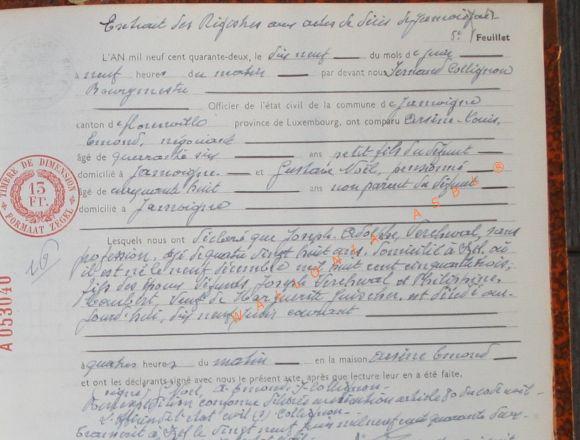 Extrait des Registres aux actes de décès de Jamoigne
5e Feuillet
L'AN mil neuf cent quarante-deux, le dix neuf du mois de juin
à neuf heures du matin par devant nous Fernand Collignon
Bourgmestre
Officier de l'état civil de la commune de Jamoigne
canton de Florenville province de Luxembourg, ont comparu Arsène Louis
Emond, négociant
âgé de quarante six ans petit fils du défunt
domicilié à Jamoigne et Gustave Noël, pensionné
âgé de cinquante huit ans non parent du défunt
domicilié à Jamoigne
Lesquels nous ont déclaré que Joseph Adolphe Verchval, sans
profession, âgé de quatre vingt huit ans, domicilié à Izel, où
il est né le neuf décembre mil huit cent cinquante trois,
fils des époux défunts Joseph Verchval et Philippine
Lambert, veuf de Marguerite est décédé au-
jourd'hui, dix neuf juin courant
à quatre heures du matin en la maison Arsène Emond
et ont les déclarants signé avec nous le présent acte, après que lecture leur en a été faite.
signé: Noël A. Emond F. Collignon
conforme article 80 du code civil
L'officier de l'état civil (s) Collignon
Transcrit à Izel le vingt neuf juin mil neuf cent quarante deux
TIMBRE DE DIMENSION
13
FR.
FORMAAT ZEGEL
A 053040
16
WALLONIA ASBL ®